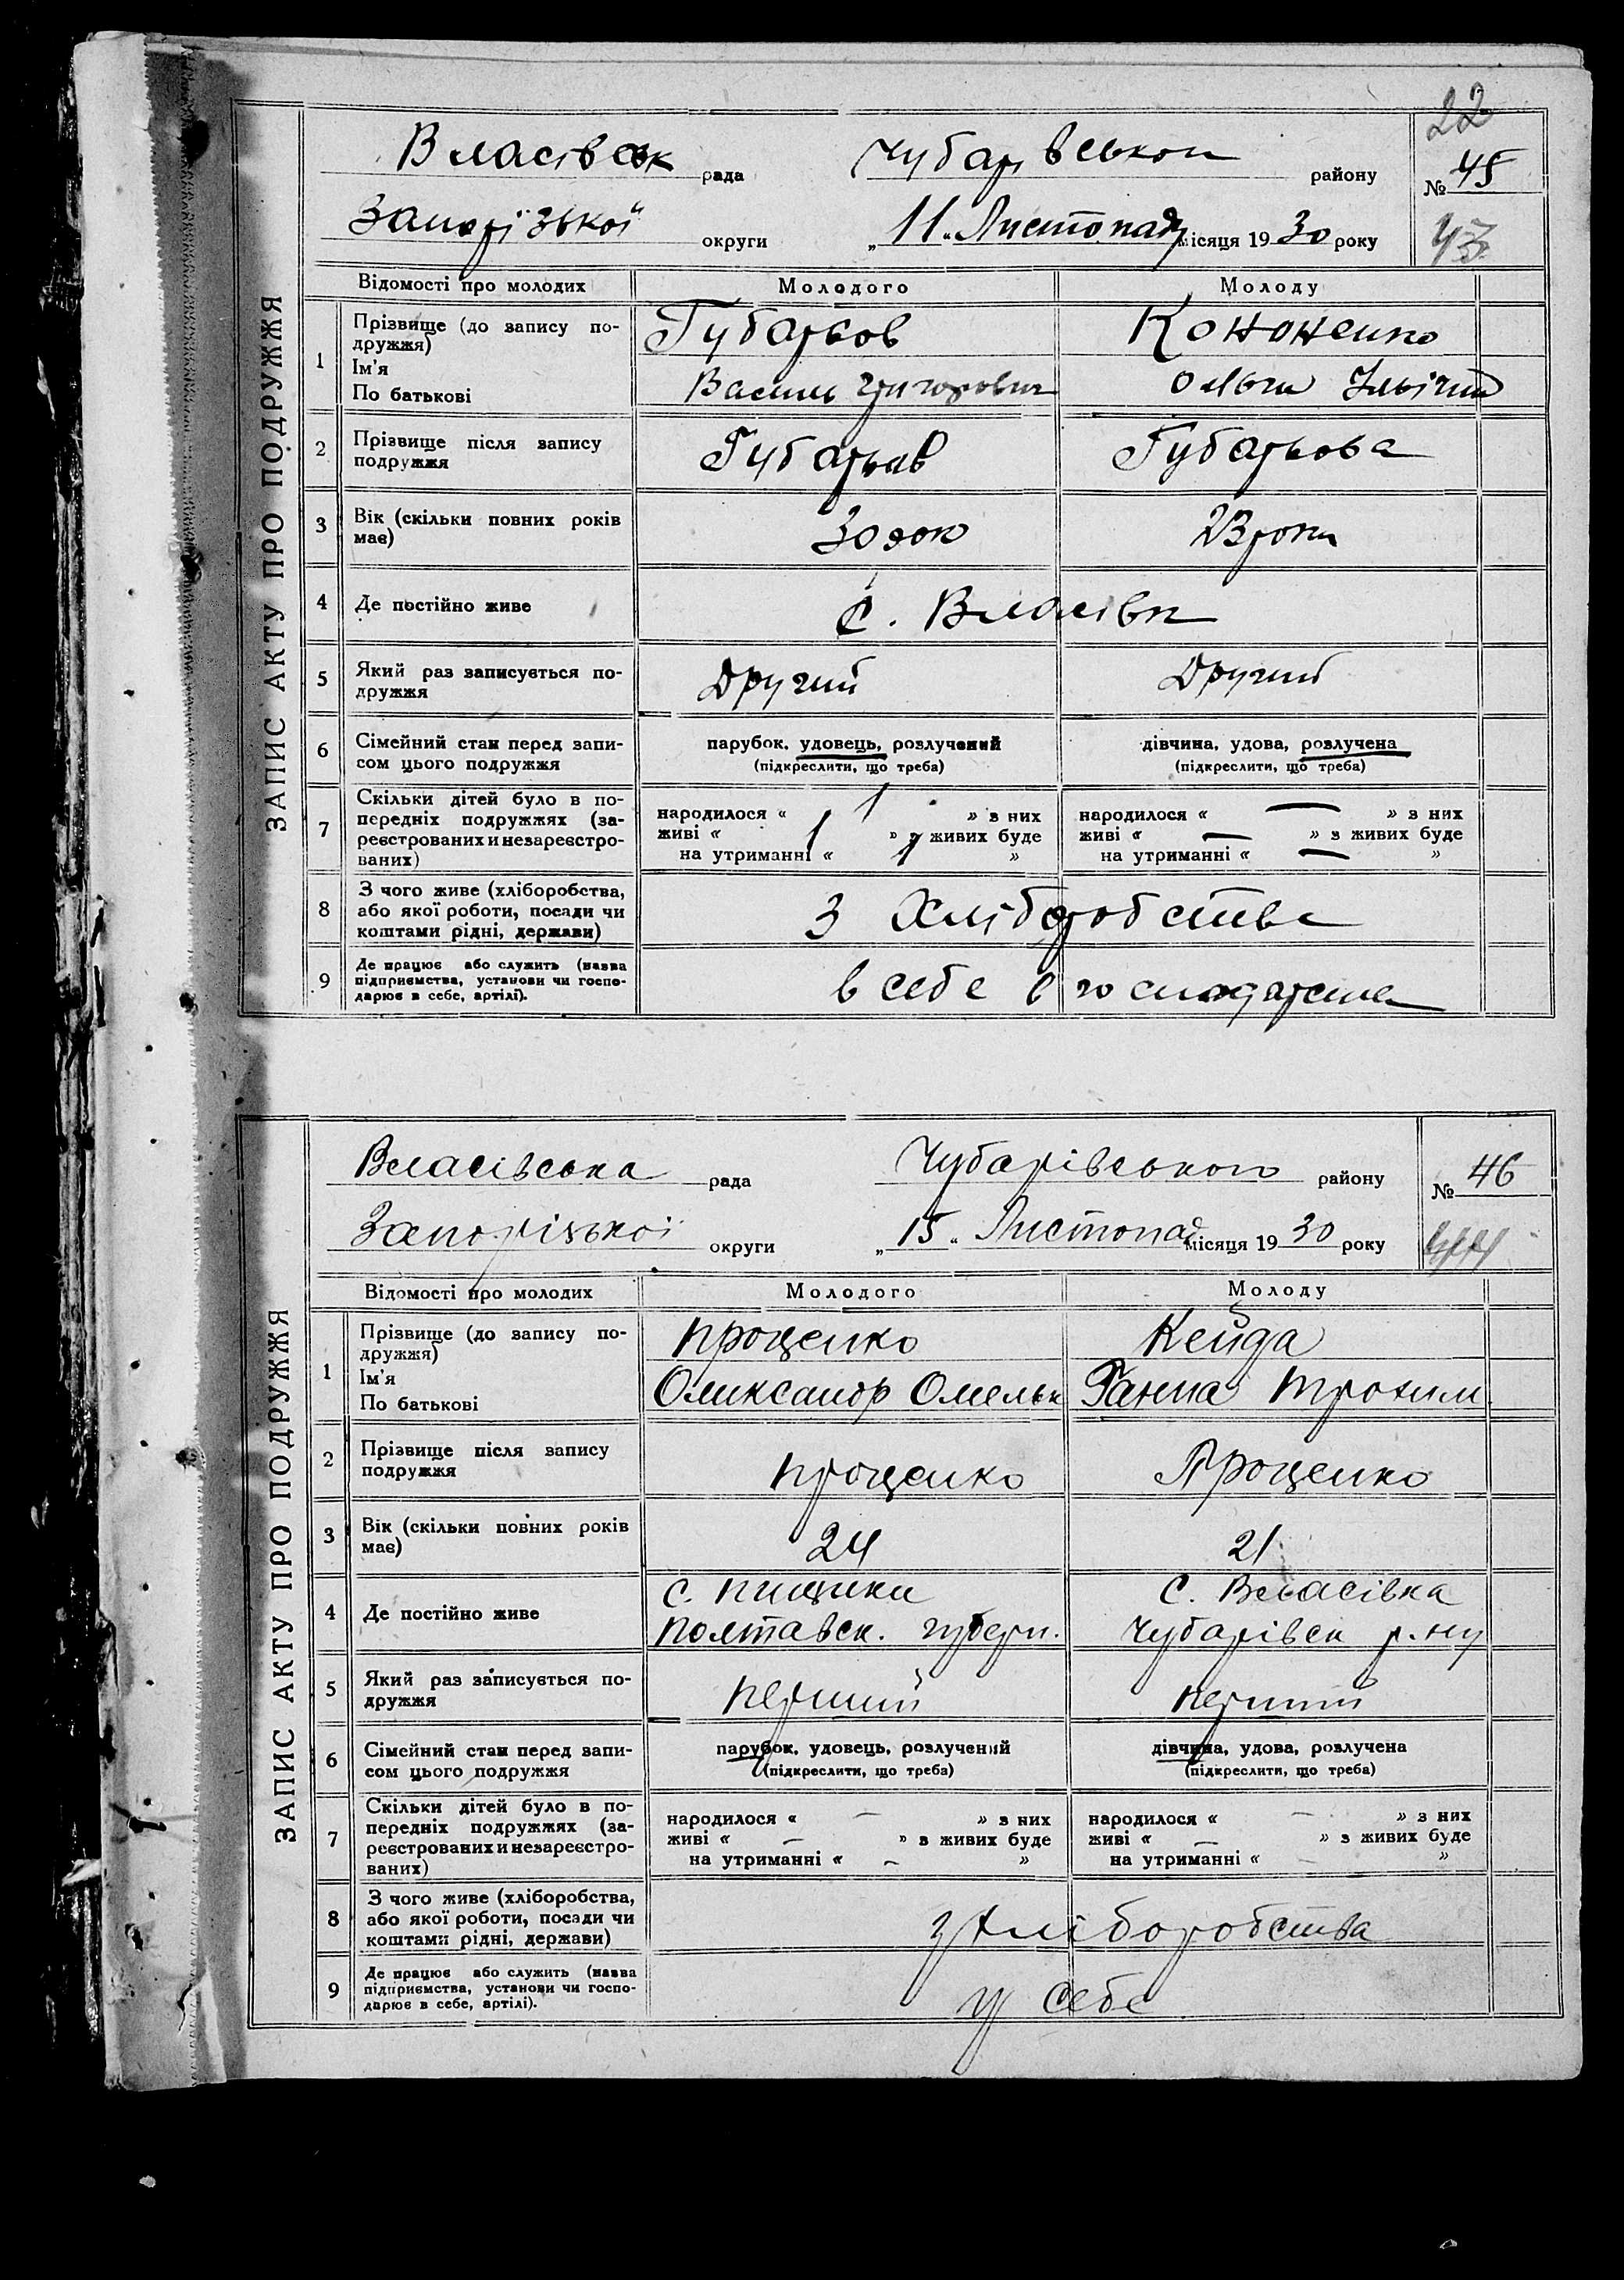 22
Власівськ рада Чубарівського району № 45
Запорізької округи „11" Листопад місяця 1930 року 43
ЗАПИС АКТУ ПРО ПОДРУЖЖЯ
Відомості про молодих Молодого Молоду
1 Прізвище (до запису по-
дружжя) Губарьов Кононенко
Ім'я
По батькові Василь Григорович Ольги
2 Прізвище після запису
подружжя Губарьов Губарьова
3 Вік (скільки повних років
має) 30 23 роки
4 Де постійно живе с. Власівк
5 Який раз записується по-
дружжя Другий Другий
6 Сімейний стан перед запи-
сом цього подружжя парубок, удовець, розлучений дівчина, удова, розлучена
(підкреслити, що треба) (підкреслити, що треба)
7 Скільки дітей було в по-
передніх подружжях (за-
реєстрованих и незареєстро-
ваних)
народилося « 1 » з них народилося « — » з них
живі « 1 » з живих буде живі « — » з живих буде
на утриманні « 1 » на утриманні « — »
8 З чого живе (хліборобства,
або якої роботи, посади чи
коштами рідні, держави) З Хліборобства
9 Де працює або служить (назва
підприємства, установи чи госпо-
дарює в себе, артілі). в себе в господарстве
Власівська рада Чубарівського району № 46
Запорізької округи „15" Листопад місяця 1930 року
ЗАПИС АКТУ ПРО ПОДРУЖЖЯ
Відомості про молодих Молодого Молоду
1 Прізвище (до запису по-
дружжя) Проценко Кейда
Ім'я
По батькові Олександр Омельк Ганна Трохим.
2 Прізвище після запису
подружжя Проценко Проценко
3 Вік (скільки повних років
має) 24 21
4 Де постійно живе с. Пищики с. Власівка
Полтавск. губерн. Чубарівск р.ну
5 Який раз записується по-
дружжя перший перший
6 Сімейний стан перед запи-
сом цього подружжя парубок, удовець, розлучений дівчина, удова, розлучена
(підкреслити, що треба) (підкреслити, що треба)
7 Скільки дітей було в по-
передніх подружжях (за-
реєстрованих и незареєстро-
ваних)
народилося « — » з них народилося « — » з них
живі « — » з живих буде живі « — » з живих буде
на утриманні « — » на утриманні « — »
8 З чого живе (хліборобства,
або якої роботи, посади чи
коштами рідні, держави) з Хліборобства
9 Де працює або служить (назва
підприємства, установи чи госпо-
дарює в себе, артілі). у себе